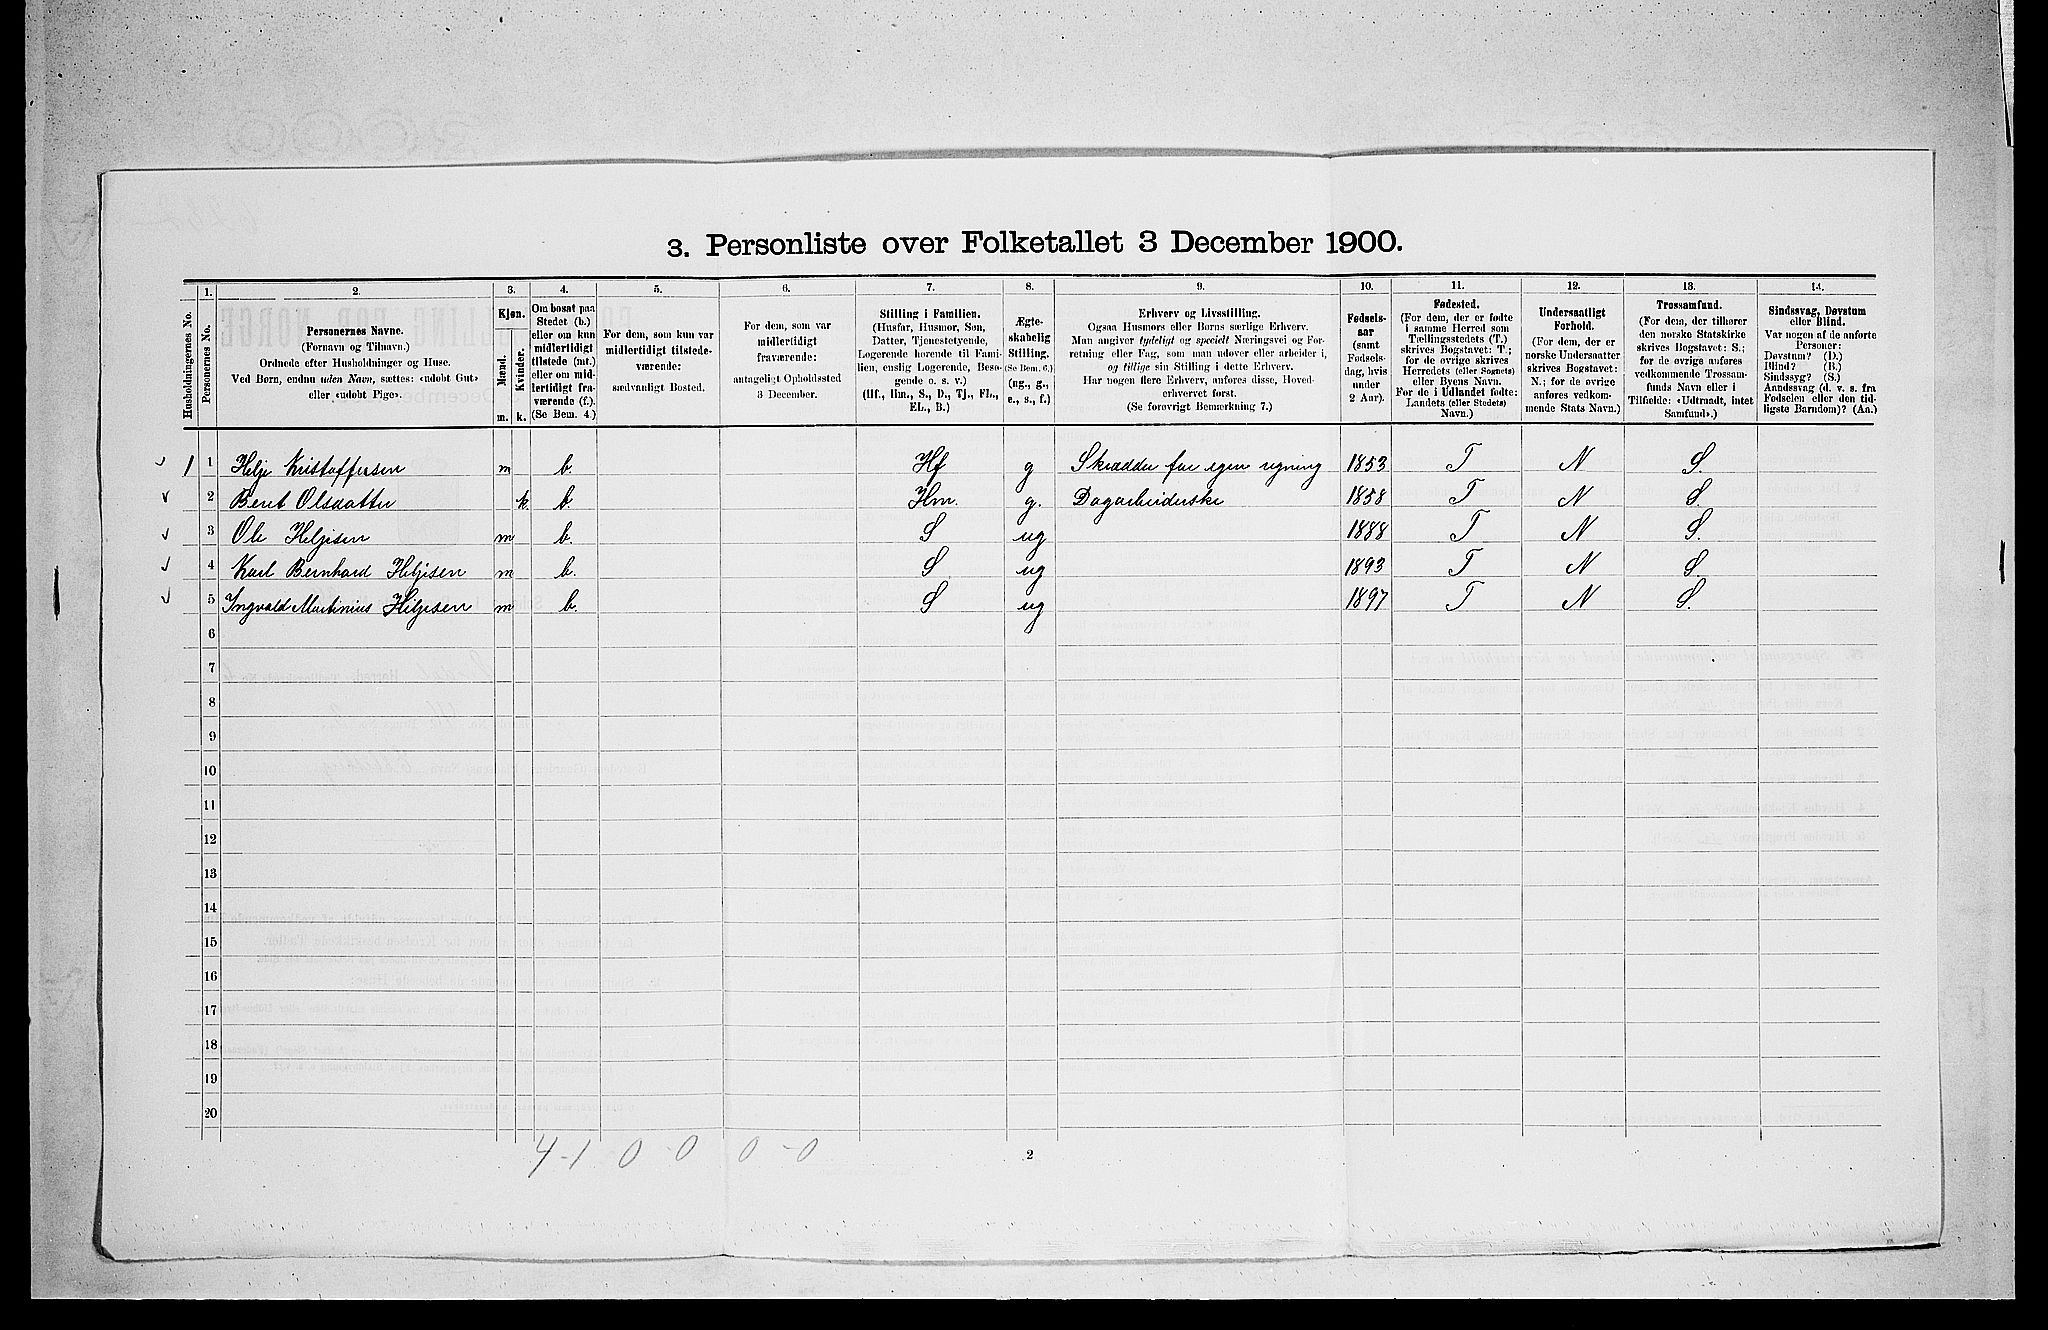 3. Personliste over Folketallet 3 December 1900.
1. 2. 3. 4. 5. 6. 7. 8. 9. 10. 11. 12. 13. 14.
Husholdningernes No.
Personernes No.
Personernes Navne.
(Fornavn og Tilnavn.)
Ordnede efter Husholdninger og Huse.
Ved Børn, endnu uden Navn, sættes: «udøbt Gut»
eller «udøbt Pige».
Kjøn.
Mænd.
Kvinder.
m. k.
Om bosat paa
Stedet (b.)
eller om kun
midlertidigt
tilstede (mt.)
eller om mid-
lertidigt fra-
værende (f.).
(Se Bem. 4.)
For dem, som kun var
midlertidigt tilstede-
værende:
sædvanligt Bosted.
For dem, som var
midlertidigt
fraværende:
antageligt Opholdssted
3 December.
Stilling i Familien.
(Husfar, Husmor, Søn,
Datter, Tjenestetyende,
Logerende hørende til Fami-
lien, enslig Logerende, Besø-
gende o. s. v.)
(Hf., Hm., S., D., Tj., FL.,
EL., B.)
Ægte-
skabelig
Stilling.
(Se Bem. 6.)
(ug., g.,
e., s., f.)
Erhverv og Livsstilling.
Ogsaa Husmors eller Børns særlige Erhverv.
Man angiver tydeligt og specielt Næringsvei og For-
retning eller Fag, som man udøver eller arbeider i,
og tillige sin Stilling i dette Erhverv.
Har nogen flere Erhverv, anføres disse, Hoved-
erhvervet først.
(Se forøvrigt Bemærkning 7.)
Fødsels-
aar
(samt
Fødsels-
dag, hvis
under
2 Aar).
Fødested.
(For dem, der er fødte
i samme Herred som
Tællingsstedets (T.)
skrives Bogstavet: T;
for de øvrige skrives
Herredets (eller Sognets)
eller Byens Navn.
For de i Udlandet fødte:
Landets (eller Stedets)
Navn.)
Undersaatligt
Forhold.
(For dem, der er
norske Undersaatter
skrives Bogstavet:
N.; for de øvrige
anføres vedkom-
mende Stats Navn.)
Trossamfund.
(For dem, der tilhører
den norske Statskirke
skrives Bogstavet: S.;
for de øvrige anføres
vedkommende Trossam-
funds Navn eller i
Tilfælde: «Udtraadt, intet
Samfund».)
Sindssvag, Døvstum
eller Blind.
Var nogen af de anførte
Personer:
Døvstum? (D.)
Blind? (B.)
Sindssyg? (S.)
Aandssvag (d. v. s. fra
Fødselen eller den tid-
ligste Barndom)? (Aa.)
1 1 Helje Kristoffersen m b. Hf g Skrædder for egen regning 1853 T N S.
2 Beret Olsdatter k. b. Hm. g. Dagarbeiderske 1858 T N S.
3 Ole Heljesen m b. S ug 1888 T N S.
4 Karl Bernhard Heljesen m b. S ug 1893 T N S
5 Ingvald Martinius Heljesen m b. S ug 1897 T N S.
6
7
8
9
10
11
12
13
14
15
16
17
18
19
20
4-1 0-0 0-0
2